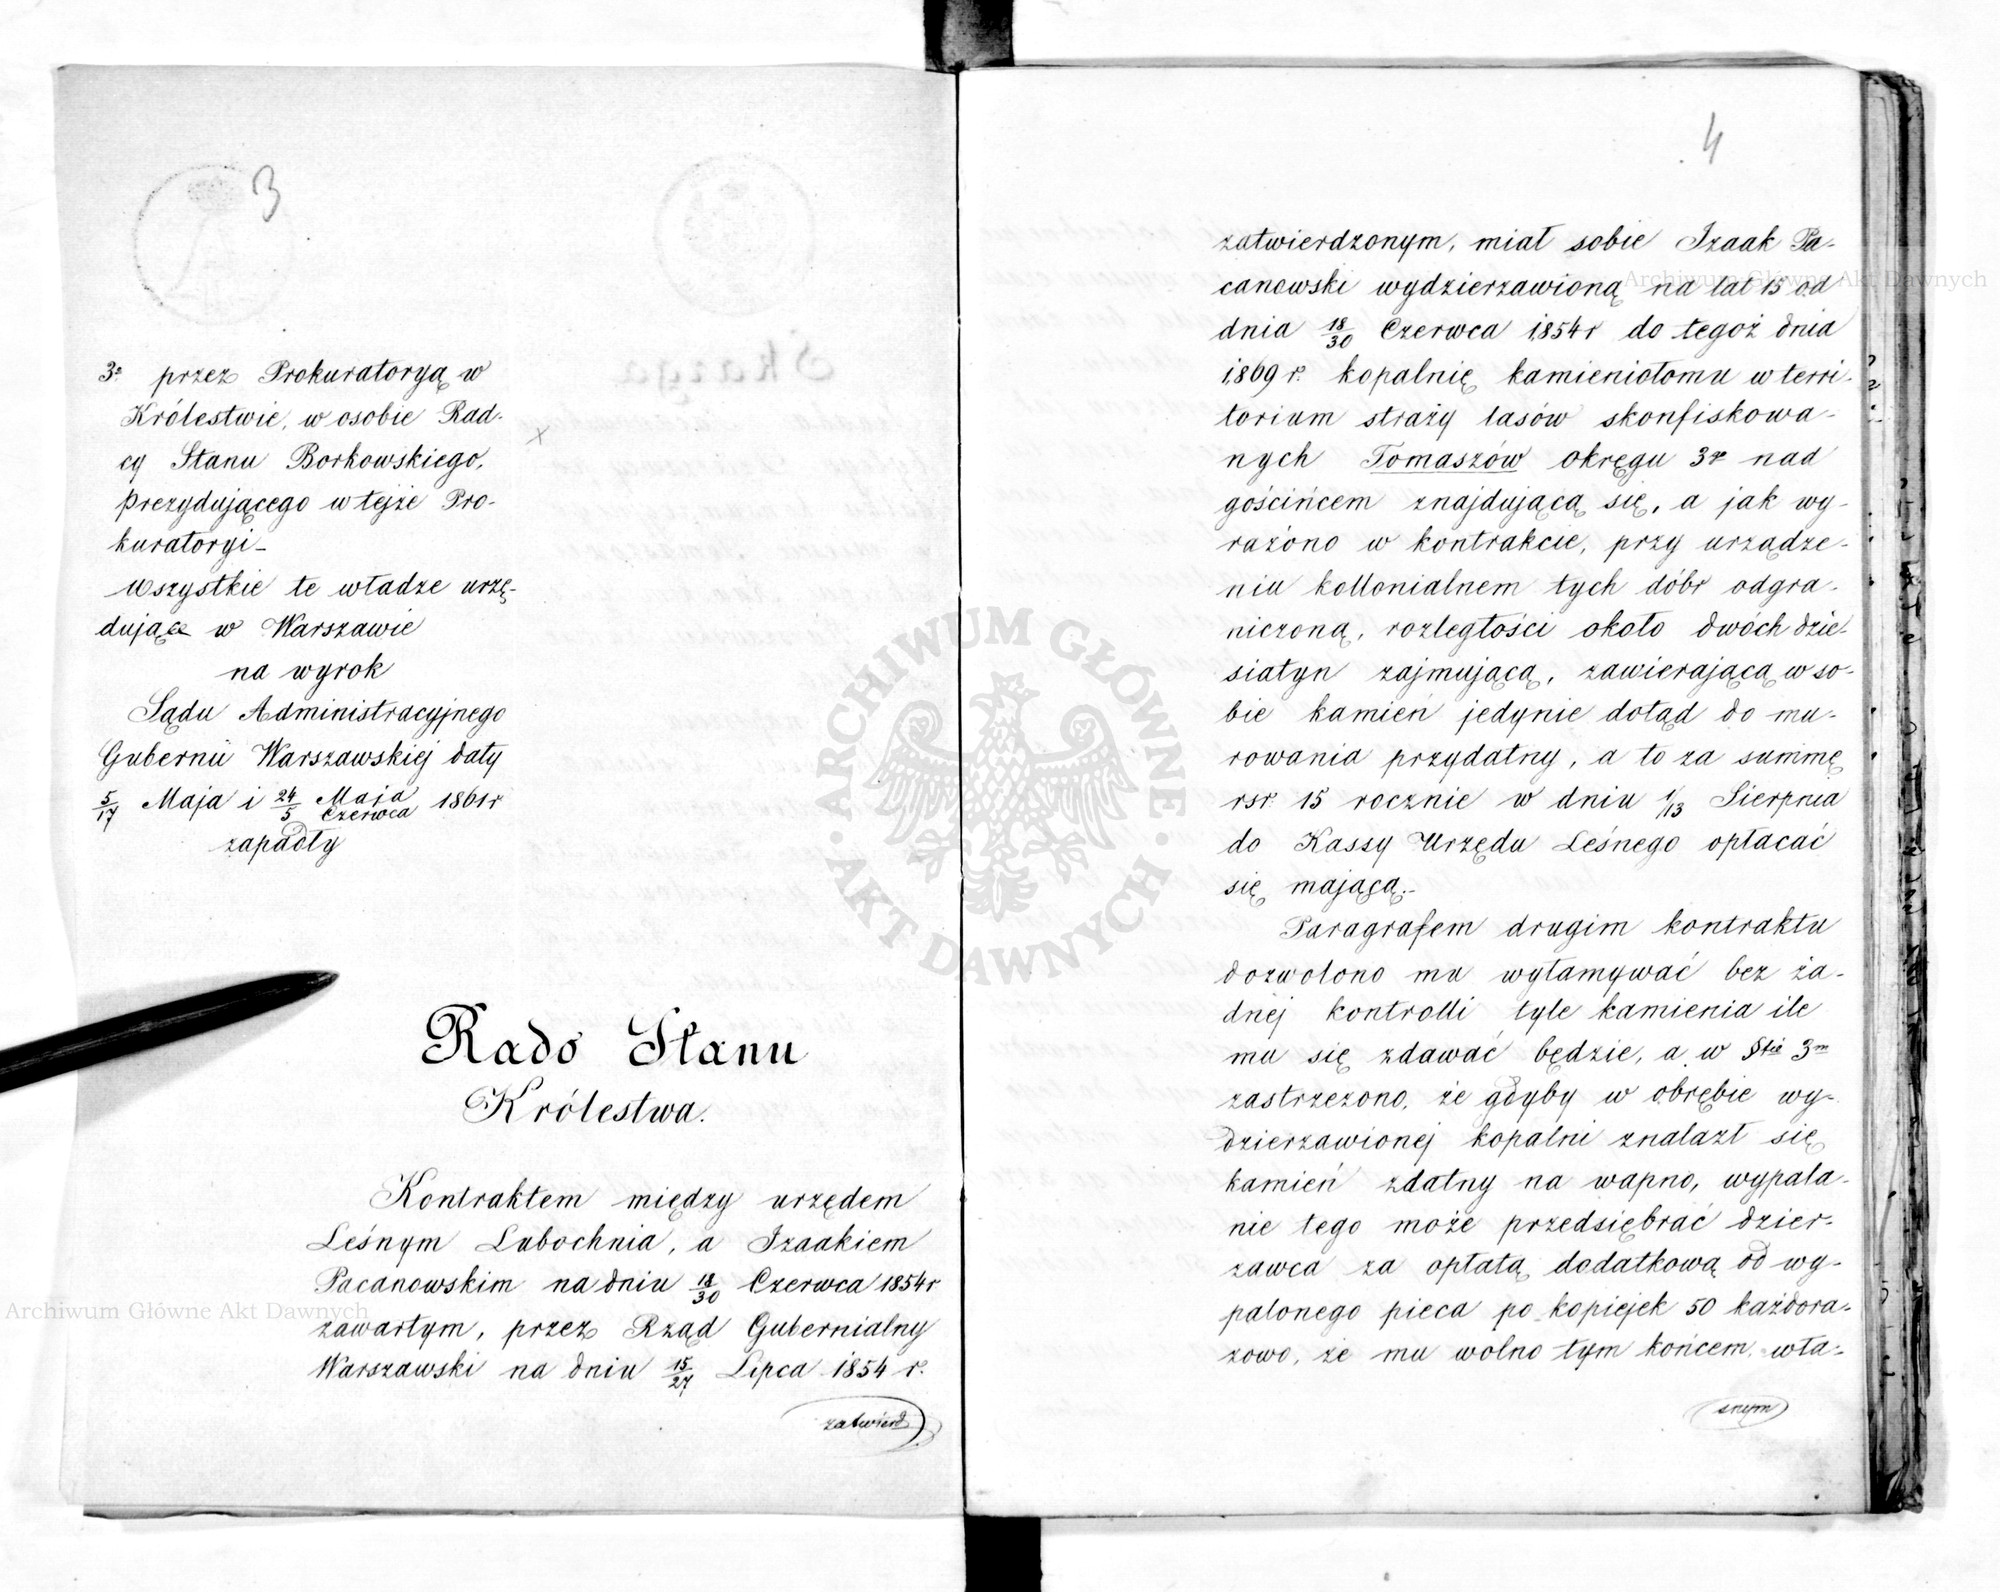 3
3º przez Prokuratoryą w
Królestwie, w osobie Rad-
cy Stanu Borkowskiego,
Prezydującego w tejże Pro-
kuratoryi_
Wszystkie te władze urzę-
dujące w Warszawie
na wyrok
Sądu Administracyjnego
Gubernii Warszawskiej daty
5/17 Maja i 24/5 Maja/Czerwca 1861 r
zapadły
Rado Stanu
Królestwa.
Kontraktem między urzędem
Leśnym Lubochnia, a Izaakiem
Pacanowskim na dniu 18/30 Czerwca 1854 r
zawartym, przez Rząd Gubernialny
Warszawski na dniu 15/27 Lipca 1854 r.
zatwierd
4
zatwierdzonym, miał sobie Izaak Pa-
canowski wydzierzawioną na lat 15 od
dnia 18/30 Czerwca 1854 r do tegoż dnia
1869 r. kopalnię kamieniołomu w terri-
torium straży lasów skonfiskowa-
nych Tomaszów okręgu 3go nad
gościńcem znajdującą się, a jak wy-
rażóno w kontrakcie, przy urządze-
niu kollonialnem tych dóbr odgra-
niczoną, rozległości około dwóch dzie-
siatyn zajmującą, zawierającą w so-
bie kamień jedynie dotąd do mu-
rowania przydatny, a to za summę
rsr. 15 rocznie w dniu 1/13 Sierpnia
do Kassy Urzędu Leśnego opłacać
się mającą._
Paragrafem drugim kontraktu
dozwolono mu wyłamywać bez ża-
dnej kontrolli tyle kamienia ile
mu się zdawać będzie, a w §fie 3m
zastrzeżono, że gdyby w obrębie wy-
dzierzawionej kopalni znalazł się
kamień zdatny na wapno, wypala-
nie tego może przedsiębrać dzier-
zawca za opłatą dodatkową od wy-
palonego pieca po kopiejek 50 każdora-
zowo, że mu wolno tym końcem wła-
snym
Archiwum Główne Akt Dawnych
Archiwum Główne Akt Dawnych
ARCHIWUM GŁÓWNE
AKT DAWNYCH